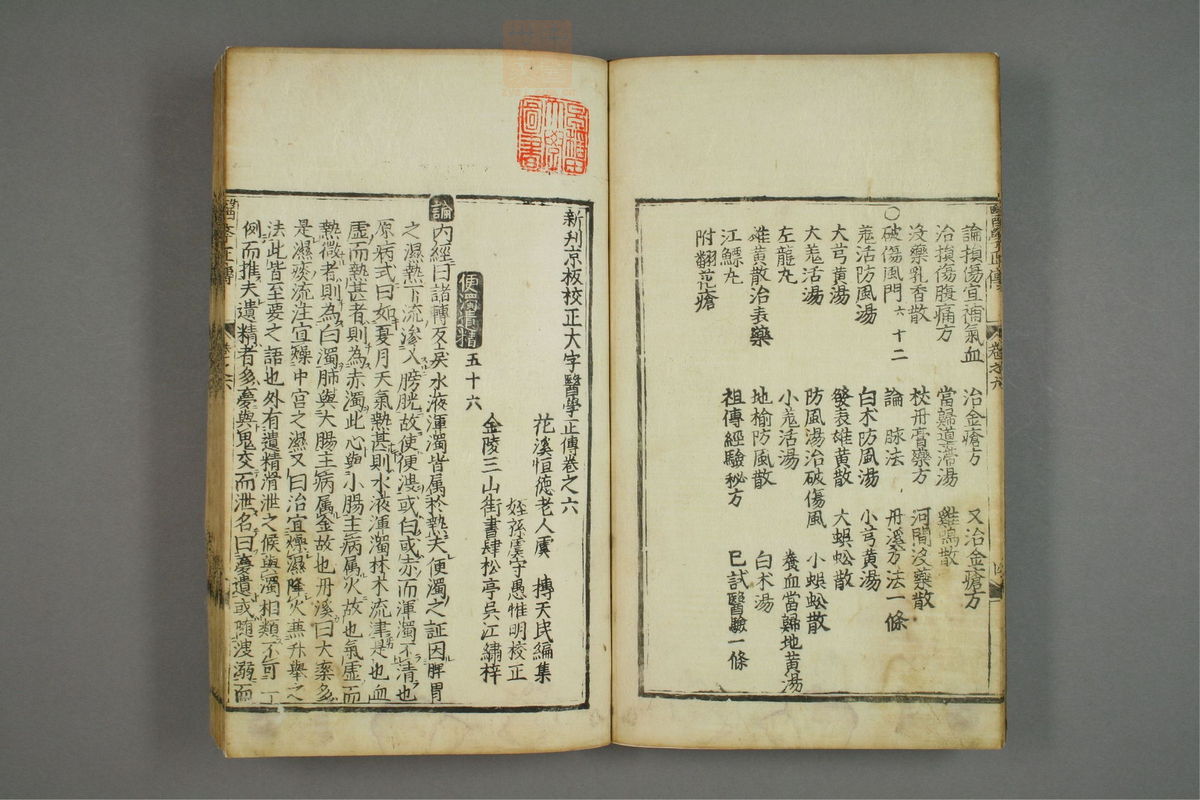 論損傷宜補氣血 治金瘡方 又治金瘡方
治損傷腹痛方 當歸導滯湯 雞鳴散
没藥乳香散 接丹膏藥方 河間没藥散
○破傷風門六十二 論 脉法 丹溪方法一條
羗活防風湯 白朮防風湯 小芎黄湯
大芎黄湯 發表雄黄散 大蜈蚣散
大羗活湯 防風湯治破傷風 小蜈蚣散
左龍丸 小羗活湯 養血當歸地黄湯
雄黄散治表藥 地榆防風散 白朮湯
江鰾丸 祖傳經驗秘方 已試醫驗一條
附翻花瘡
新刋京板校正大字醫學正傳卷之六
花溪恒德老人虞 摶天民編集
姪孫虞守愚惟明校正
金陵三山街書肆松亭吳江繡梓
便濁遺精 五十六
論內經曰諸轉反戾水液渾濁皆属於熱夫便濁之証因脾胃
之濕熱下流滲入膀胱故使便溲或白或赤而渾濁不清也
原病式曰如夏月天氣熱甚則水液渾濁林木流津是也血
虛而熱甚者則為赤濁此心與小腸主病属火故也氣虛而
熱微者則為白濁肺與大腸主病属金故也丹溪曰大率多
是濕痰流注宜燥中宫之濕又曰治宜燥濕降火兼升舉之
法此皆至要之語也外有遺精滑泄之候與濁相類不可一
例而推夫遺精者多夢與鬼交而泄名曰夢遺或随溲溺而